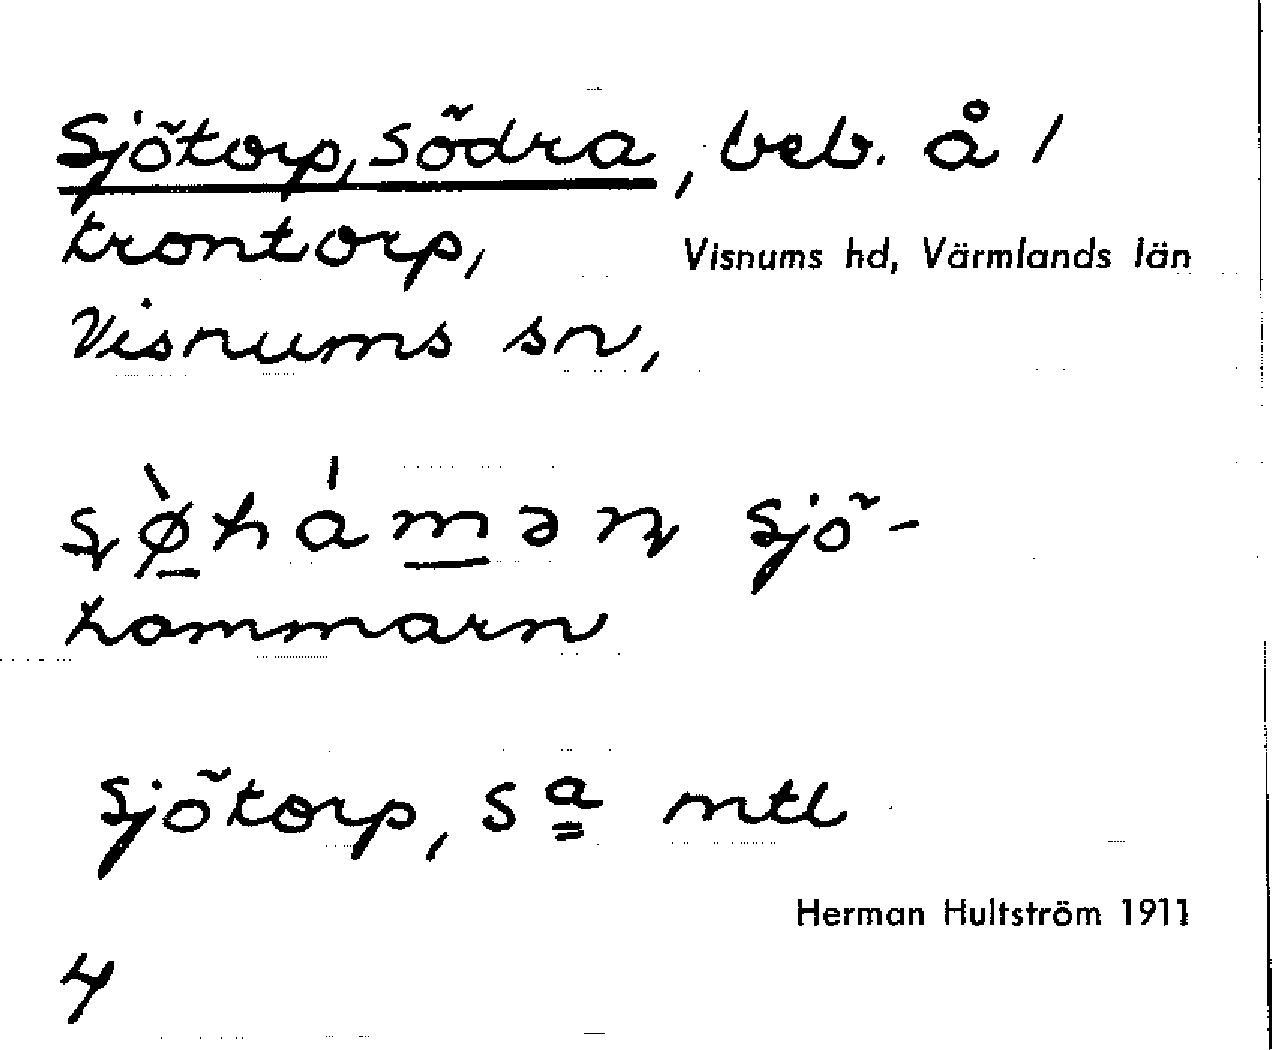 Sjötorp, Södra, beb. å /
Krontorp,
Visnums hd, Värmlands län
Visnums sn,
sjö-
hammarn
Sjötorp, Sa mtl
Herman Hultström 1911
4